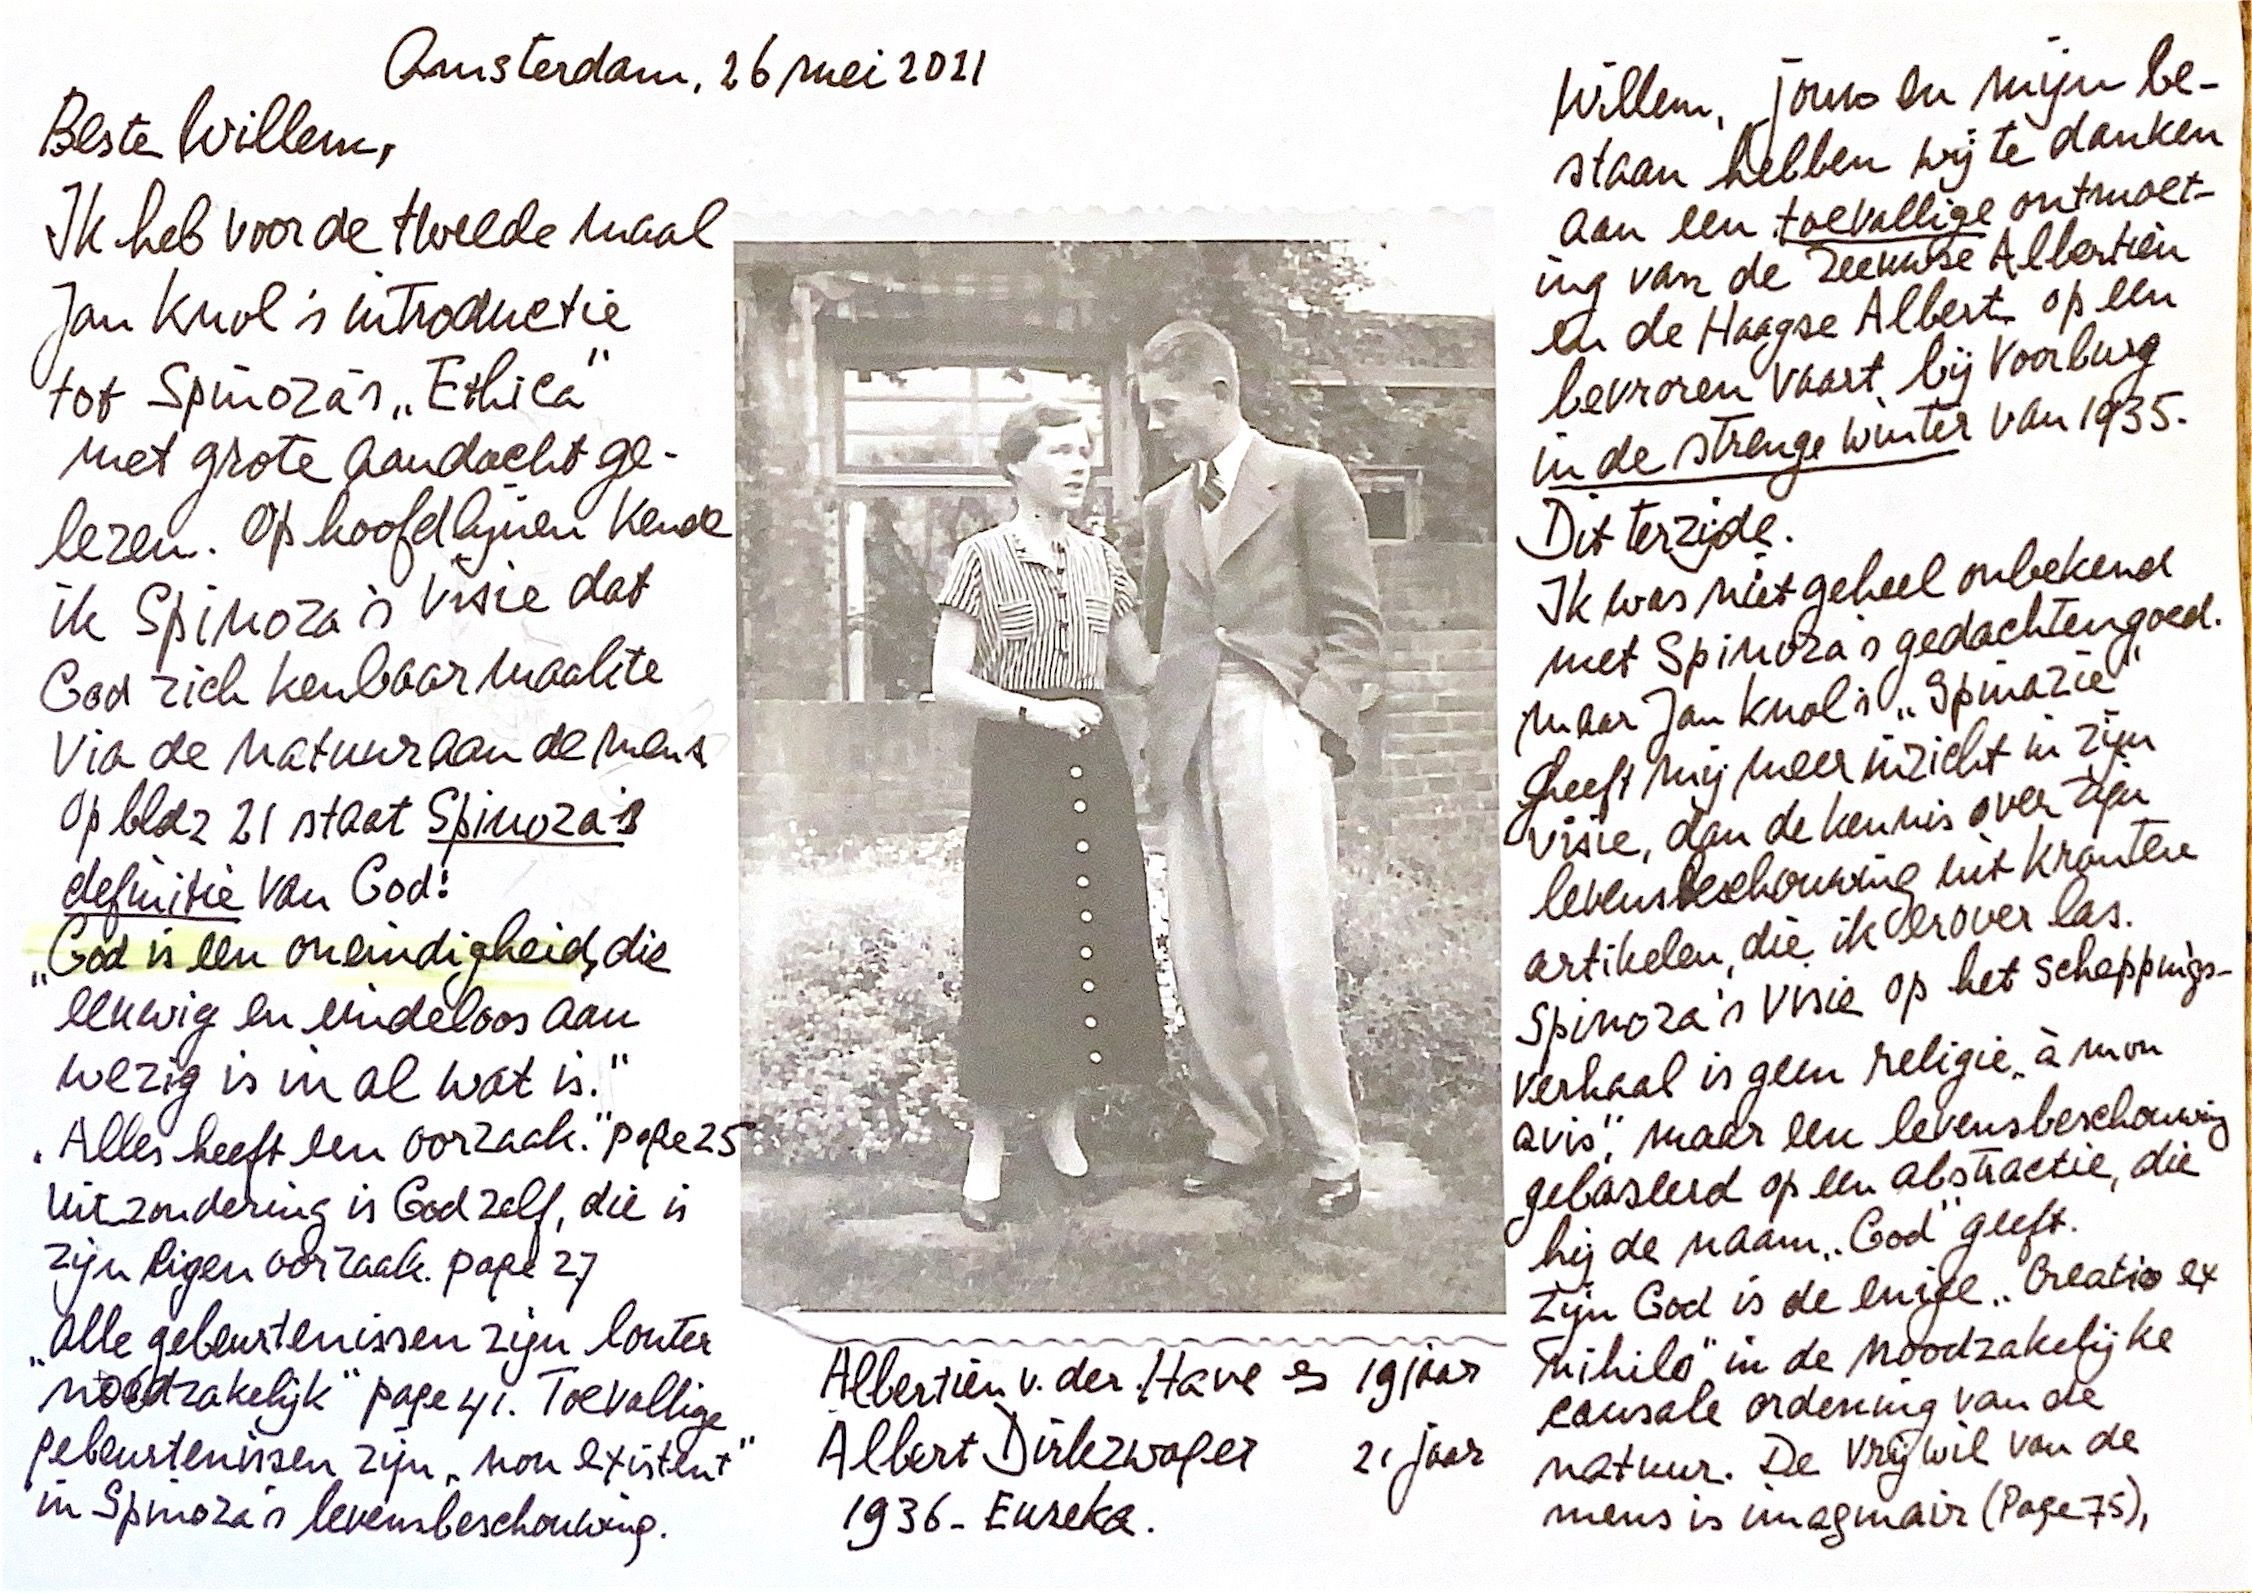 Amsterdam, 26 mei 2021
Beste Willem,
Ik heb voor de tweede maal
Jan Knol's introductie
tot Spinoza's „Ethica"
met grote aandacht ge-
lezen. Op hoofdlijnen kende
ik Spinoza's visie dat
God zich kenbaar maakte
via de natuur aan de mens
op bldz 21 staat Spinoza's
definitie van God:
„God is een oneindigheid, die
eeuwig en eindeloos aan
wezig is in al wat is."
„Alles heeft een oorzaak." page 25
Uitzondering is God zelf, die is
zijn eigen oorzaak. page 27
„Alle gebeurtenissen zijn louter
noodzakelijk" page 41. Toevallige
gebeurtenissen zijn „non existent"
in Spinoza's levensbeschouwing.
Albertien v. der Have 19 jaar
Albert Dirkzwager 21 jaar
1936 - Eureka.
Willem, jouw en mijn be-
staan hebben wij te danken
aan een toevallige ontmoet-
ing van de Zeeuwse Albertien
en de Haagse Albert op een
bevroren vaart bij Voorburg
in de strenge winter van 1935.
Dit terzijde.
Ik was niet geheel onbekend
met Spinoza's gedachtengoed.
maar Jan Knol's „Spinazie"
geeft mij meer inzicht in zijn
visie, dan de kennis over zijn
levensbeschouwing uit kranten
artikelen, die ik erover las.
Spinoza's visie op het scheppings-
verhaal is geen religie „à mon
avis", maar een levensbeschouwing
gebaseerd op een abstractie, die
hij de naam „God" geeft.
Zijn God is de enige „Creatio ex
nihilo" in de noodzakelijke
causale ordening van de
natuur. De vrij wil van de
mens is imaginair (Page 75),